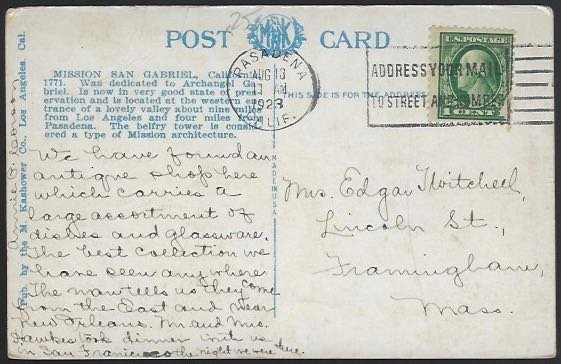 25
POST CARD
MKK
PASADENA
AUG 13
11 AM
1923
CALIF.
ADDRESS YOUR MAIL
TO STREET AND NUMBER
U.S. POSTAGE
1 CENT 1
MISSION SAN GABRIEL, California
1771. Was dedicated to Archangel Ga-
briel. Is now in very good state of pres-
ervation and is located at the western en-
trance of a lovely valley about nine miles
from Los Angeles and four miles from
Pasadena. The belfry tower is consid-
ered a type of Mission architecture.
THIS SIDE IS FOR THE ADDRESS
MADE IN USA
Pub. by the M. Kashower Co., Los Angeles, Cal.
Annie
We have found an
antique shop here
which carries a
large assortment of
dishes and glassware.
The best collection we
have seen anywhere
The man tells us they come
from the East and near
New Orleans. Mr. and Mrs.
Hawkes took dinner with us
in San Francisco the night we were there.
Mrs. Edgar Twitchell,
Lincoln St.,
Framingham,
Mass.